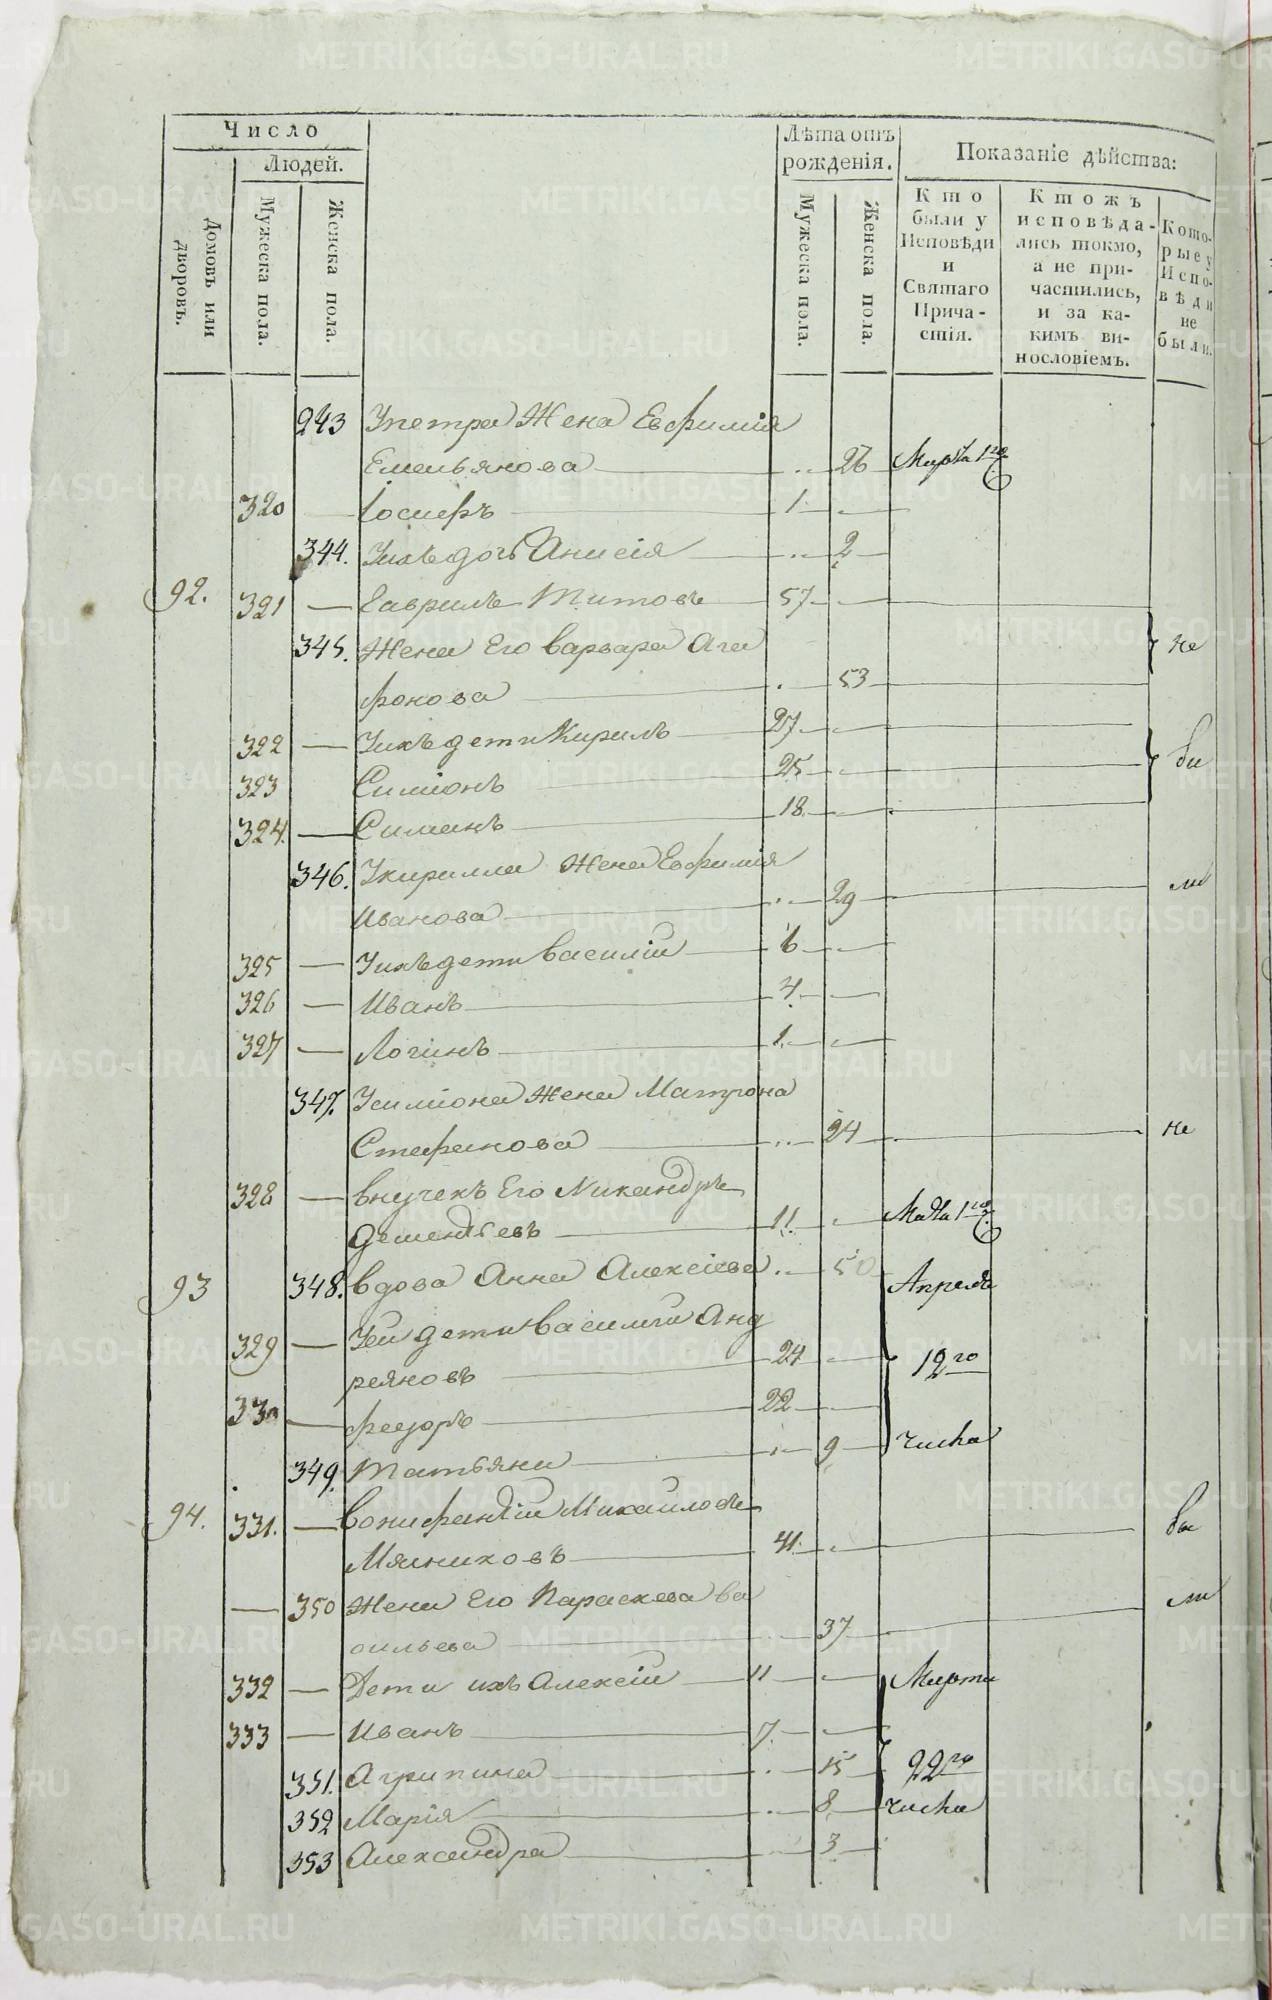 Число
Людей.
Домовъ или дворовъ.
Мужеска пола.
Женска пола.
Лѣта отъ рожденія.
Мужеска пола.
Женска пола.
Показаніе дѣйства:
Кто были у Исповѣди и Святаго Причастія.
Ктожъ исповѣдались токмо, а не причастились, и за какимъ винословіемъ.
Которые у Исповѣди не были.
243 Упетра Жена Евфимія
Емельянова 26 Марта 1го
320 Іосифъ 1
344. Ихъ дочь Анисія 2
92. 321 Гаврилъ Титовъ 57
345. Жена Его варвара Ага не
фонова 53
322 Ихъ дети Кирилъ 27
323 Симіонъ 25 бы
324. Симанъ 18
346. Укирилла Жена Евфимія
Иванова 29 ли
325 Ихъ дети василій 6
326 Иванъ 4
327 Логинъ 1
347. Усиміона Жена Матрона
Стефанова 24 не
328 внучекъ Его Никандръ
Дементьевъ 11 Марта 1го
93 348. вдова Анна Алексіева 50 Апреля
329 Уей дети василий Анд
реяновъ 24 12го
330 федоръ 22
349. Татьяна 9 числа
94. 331. вонифантій Михаиловъ бы
Мясниковъ 41
350 Жена Его Параскева ва
сильева 37 ли
332 Дети ихъ Алексій 11 Марта
333 Иванъ 7
351. Агрипина 15 22го
352 Марія 8 числа
353 Александра 3
METRIKI.GASO-URAL.RU